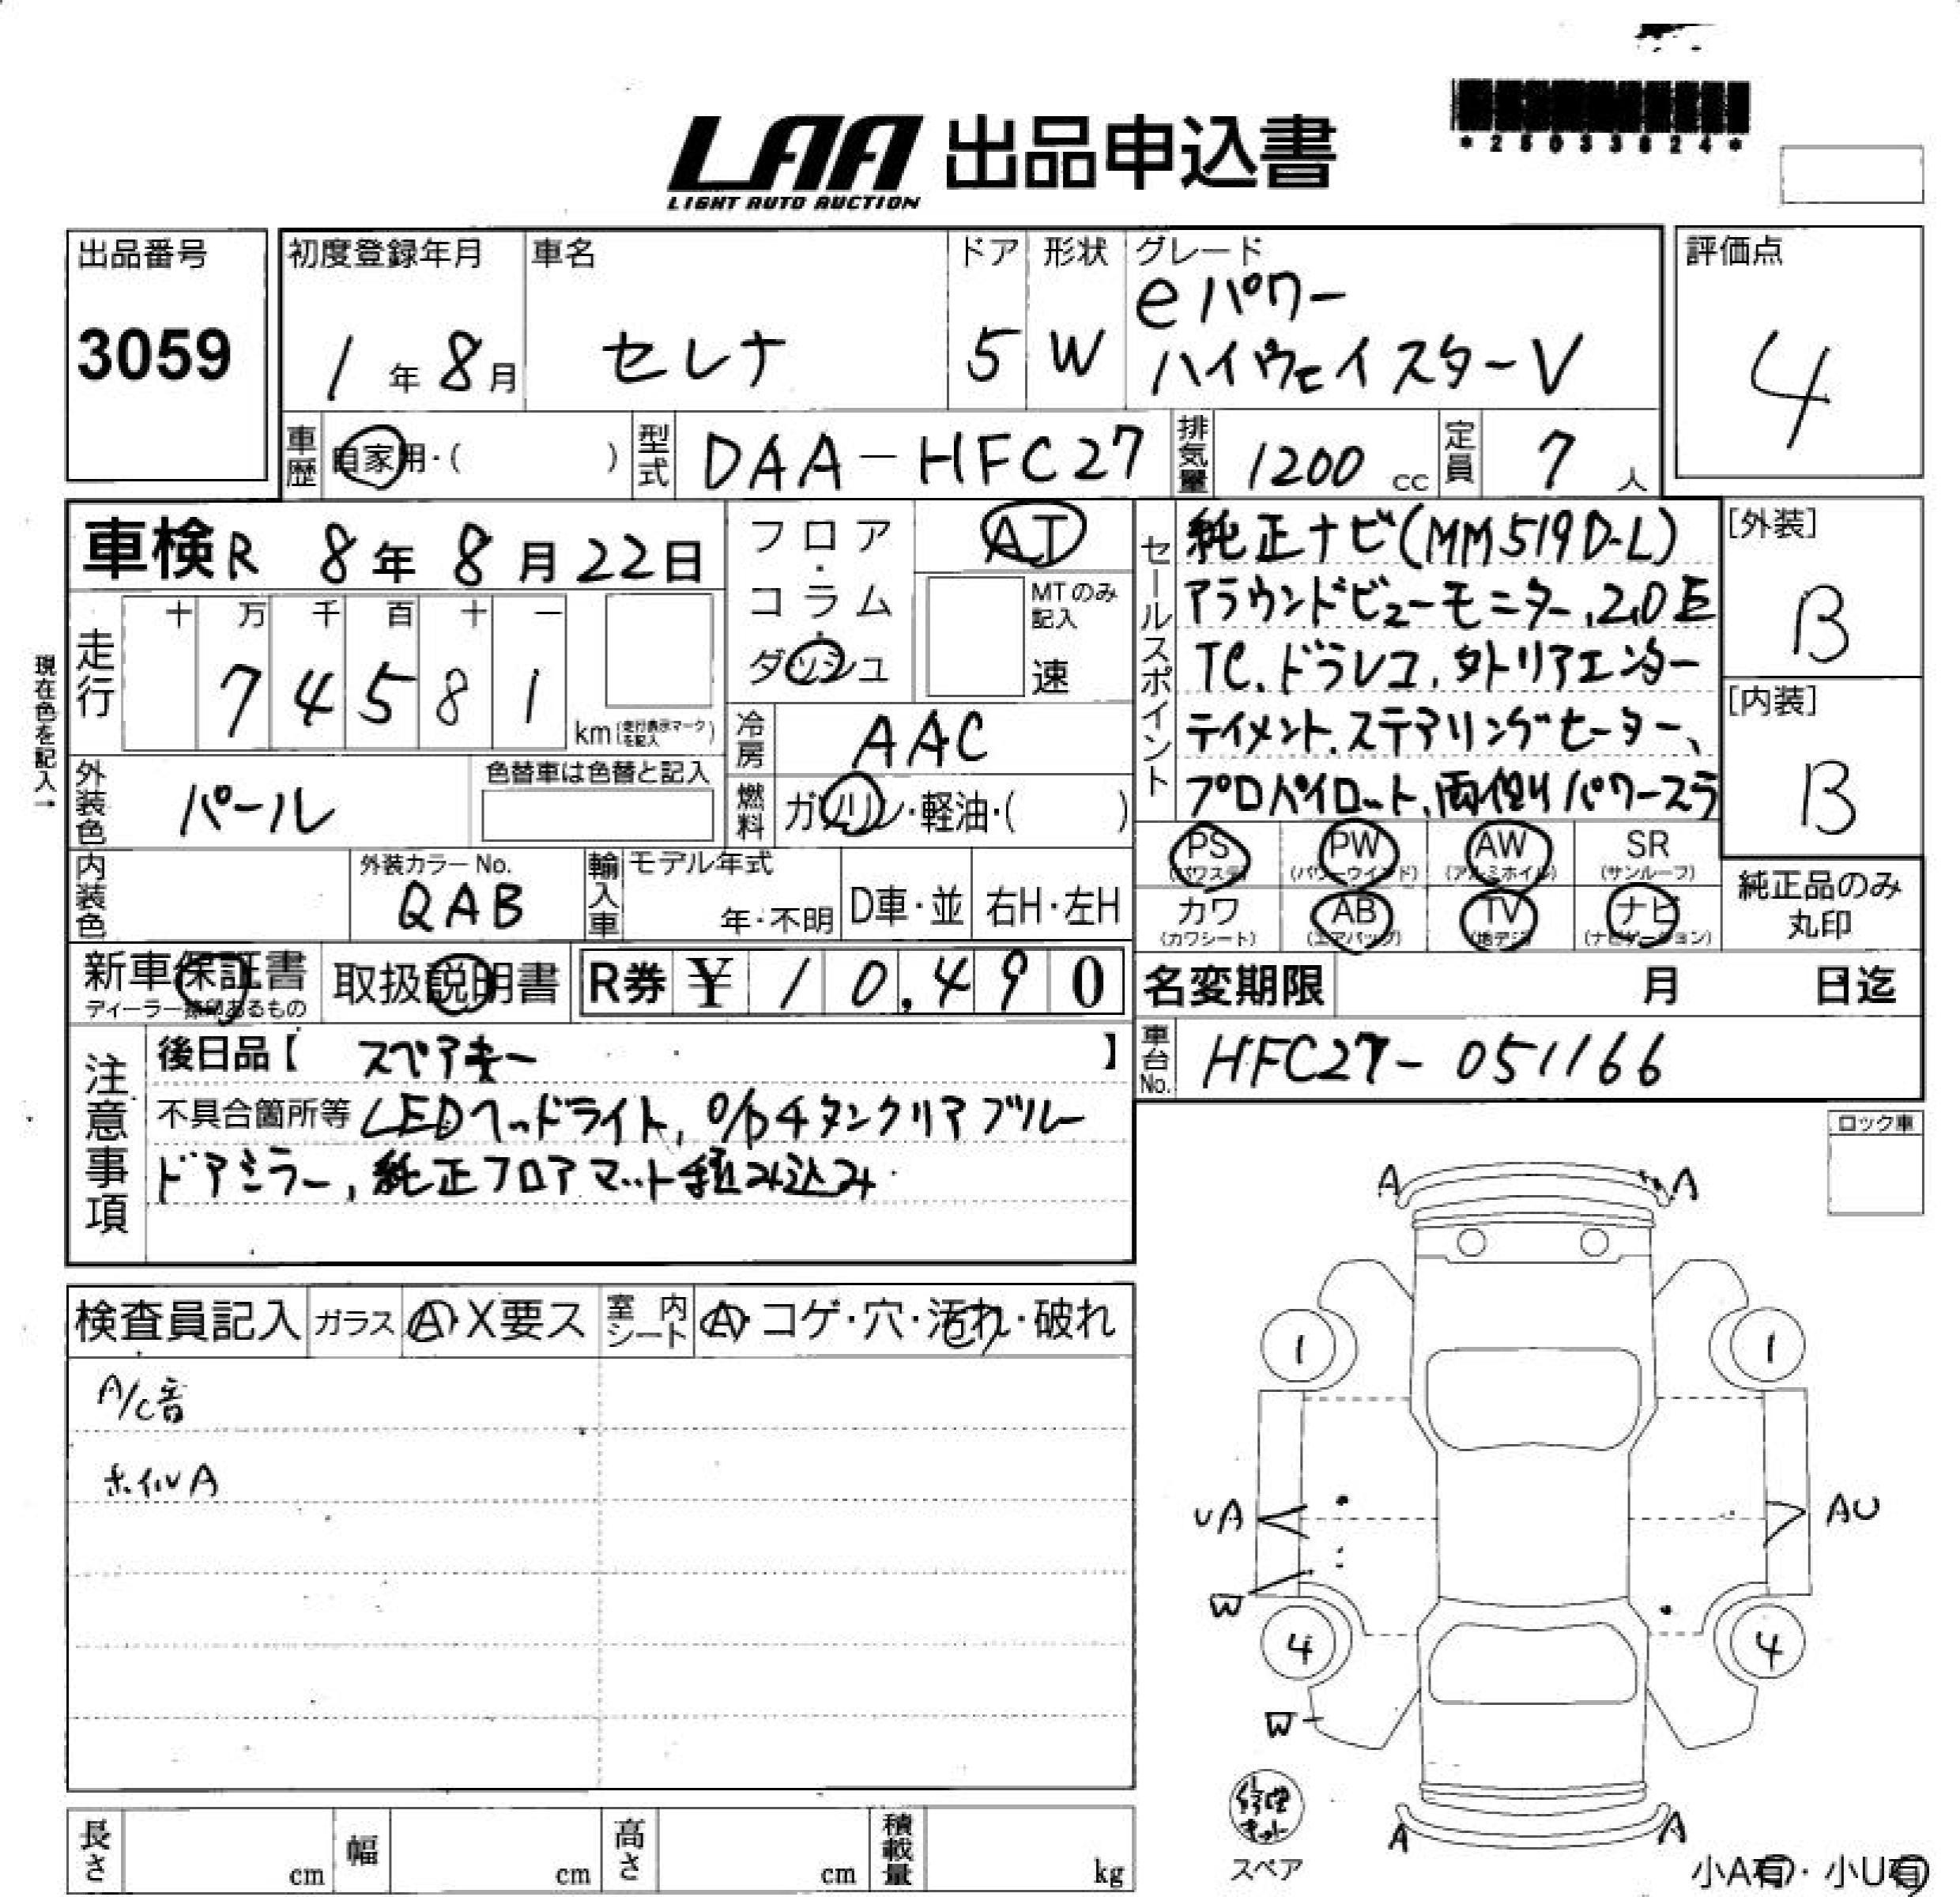 *25033624*
LAA 出品申込書
LIGHT AUTO AUCTION
出品番号
3059
初度登録年月
1年8月
車名
セレナ
ドア
5
形状
W
グレード
eパワー
ハイウェイスターV
評価点
4
車歴
自家用・( )
型式
DAA-HFC27
排気量
1200 cc
定員
7人
車検R 8年8月22日
フロア・コラム・ダッシュ
AT
MTのみ記入
速
セールスポイント
純正ナビ(MM519D-L)
アラウンドビューモニター,2.0E
TC.ドラレコ,外トリアエンター
テイメント.ステアリングヒーター、
プロパイロット,両側パワースラ
[外装]
B
[内装]
B
現在色を記入→
走行
十 万 千 百 十 一
7 4 5 8 1
km(走行表示マークを記入)
冷房
AAC
外装色
パール
色替車は色替と記入
燃料
ガソリン・軽油・( )
内装色
外装カラーNo.
QAB
輸入車
モデル年式
年・不明
D車・並
右H・左H
PS
(パワステ)
PW
(パワーウインドド)
AW
(アルミホイル)
SR
(サンルーフ)
カワ
(カワシート)
AB
(エアバッグ)
TV
(地デジ)
ナビ
(ナビゲーション)
純正品のみ
丸印
新車保証書
ディーラー捺印あるもの
取扱説明書
R券 ¥ 10,490
名変期限 月 日迄
車台No.
HFC27-051166
注意事項
後日品【 スペアキー 】
不具合箇所等 LEDヘッドライト, O/Pチタンクリアブルー
ドアミラー,純正フロアマット積み込み
ロック車
検査員記入
ガラス
A・X要ス
室内シート
A・コゲ・穴・汚れ・破れ
A/C音
ホイルA
A
A
1
1
UA
AU
W
4
4
W
修理キット
スペア
A
A
小A有・小U有
長さ cm
幅 cm
高さ cm
積載量 kg